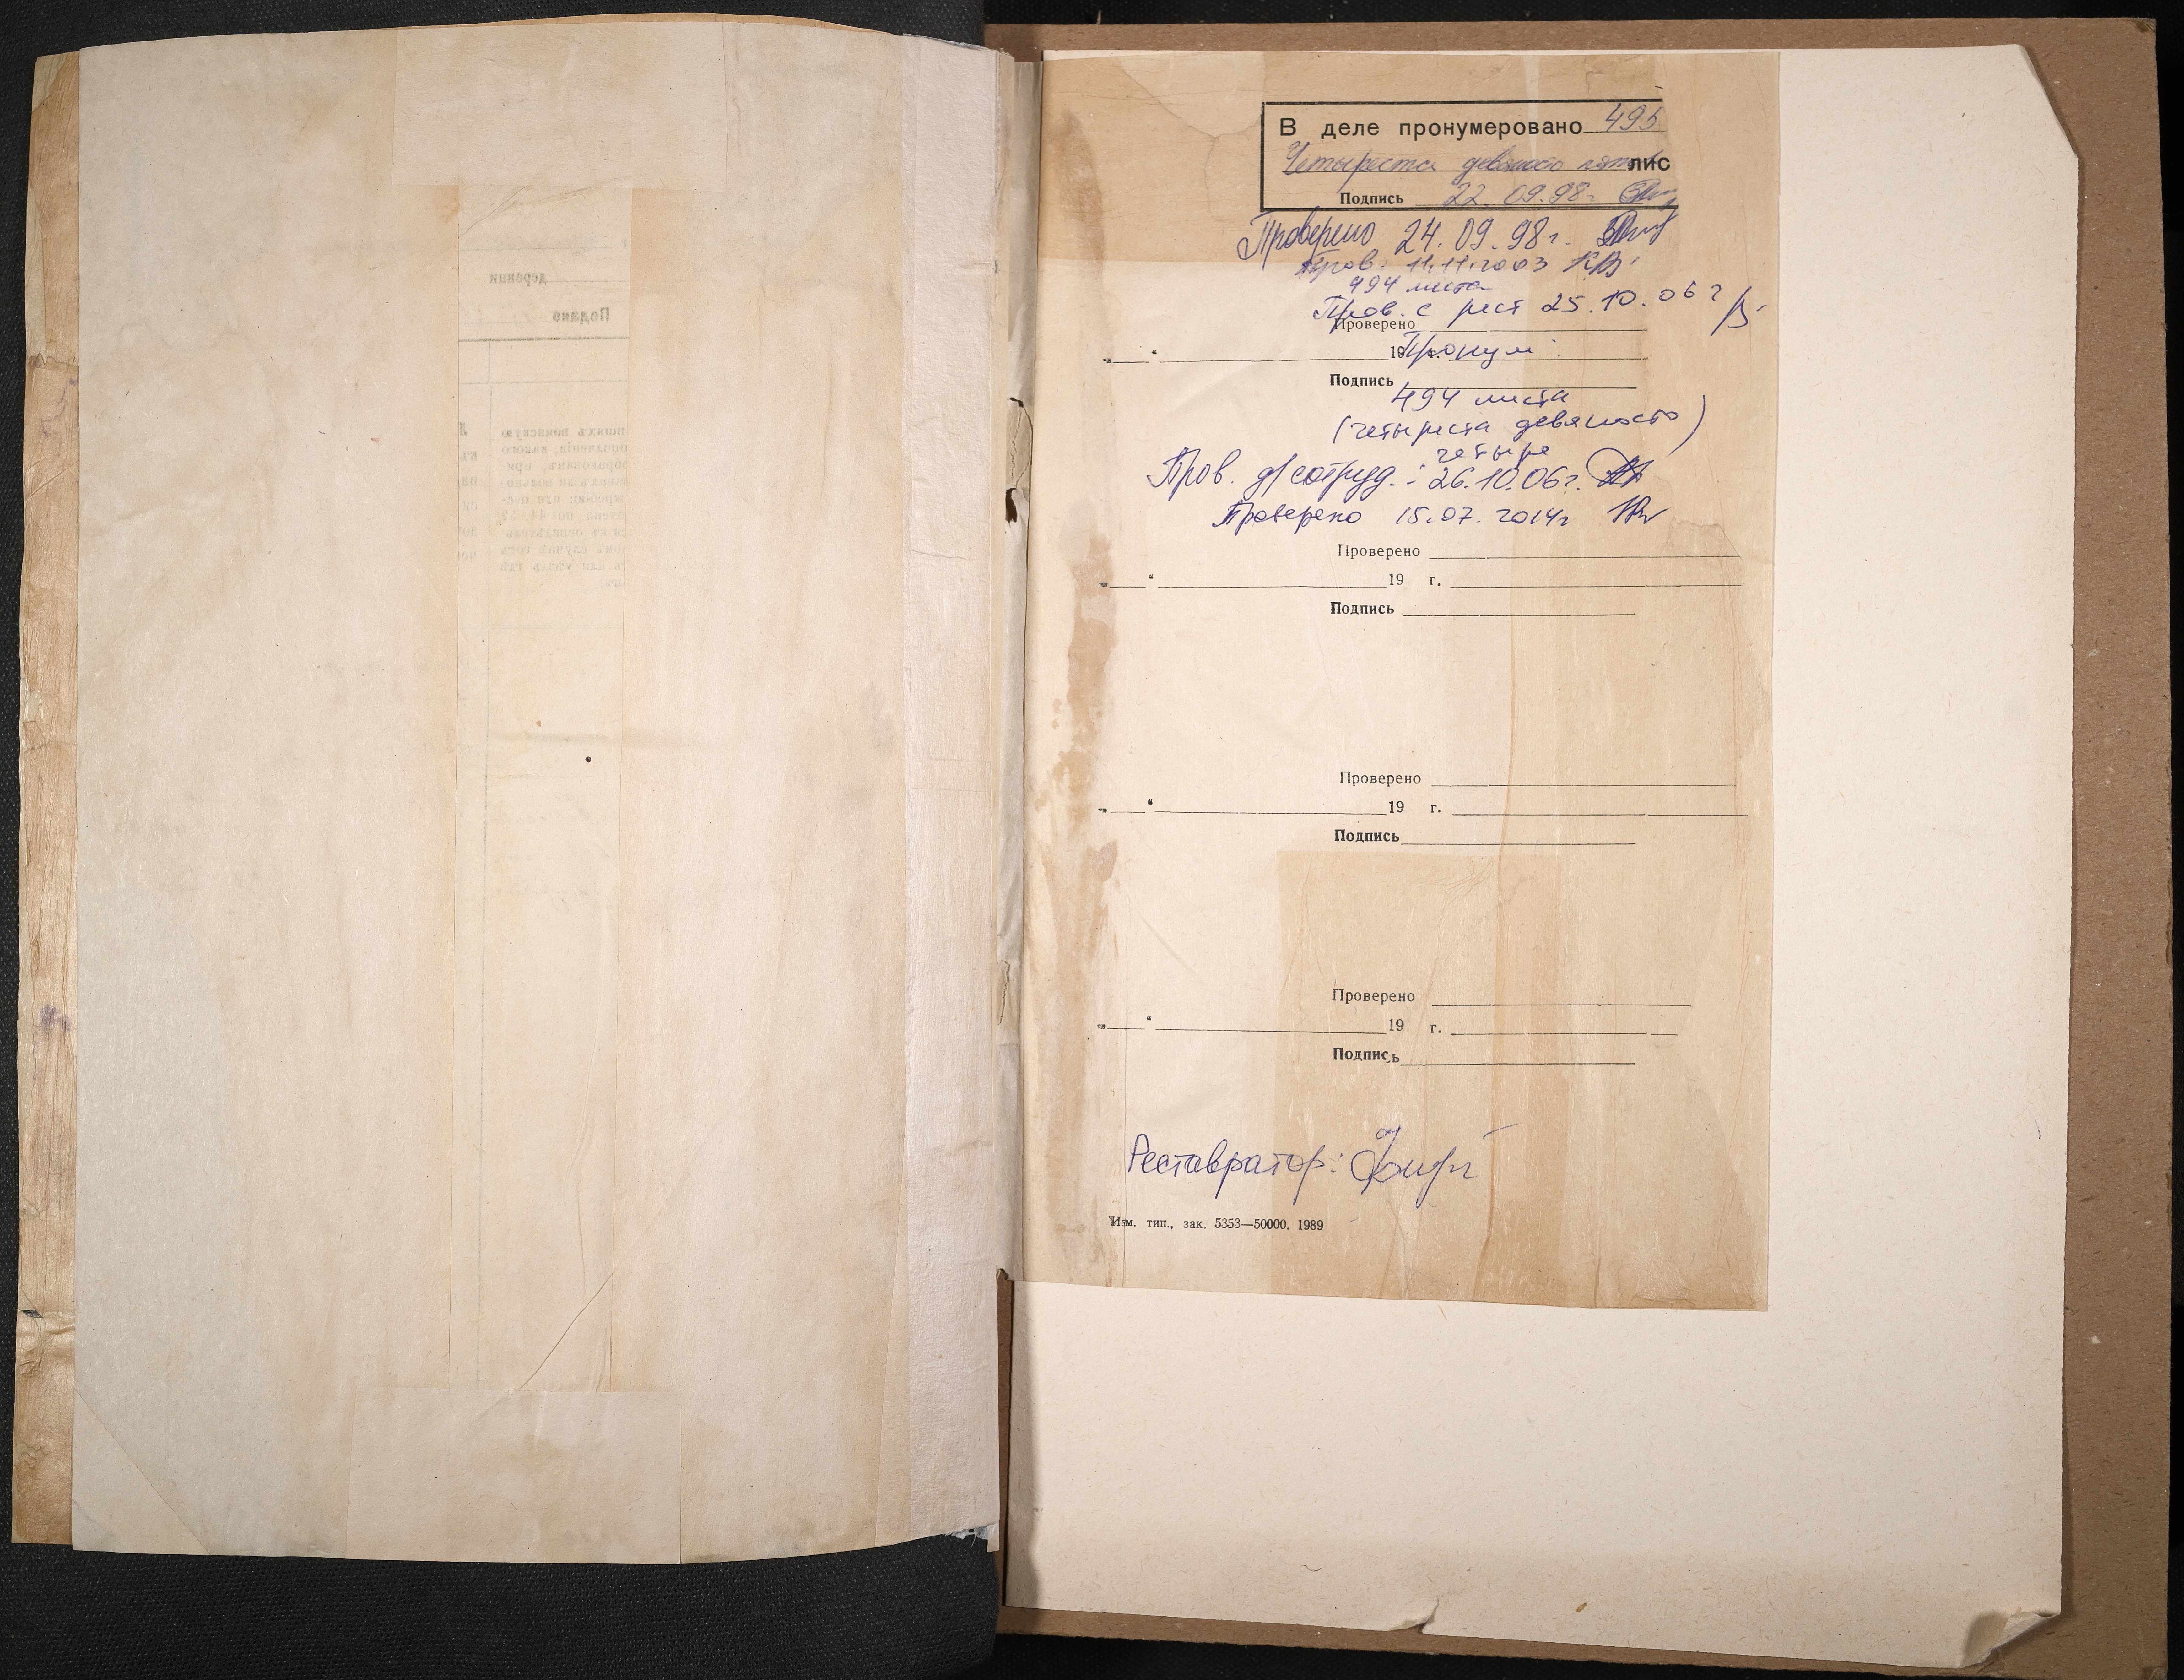 деревни
Подано
В деле пронумеровано 495
Четыреста девяносто пять лис
Подпись 22.09.98г.
Проверено 24.09.98г.
Пров. 11.11.2003 КВ
494 листа
Пров. с рест 25.10.06г
Проверено
„ “ 19 г. Пронум.
Подпись
494 листа
(четыреста девяносто)
четыре
Пров. д/сотруд.: 26.10.06г.
Проверено 15.07.2014г
Проверено
„ “ 19 г.
Подпись
Проверено
„ “ 19 г.
Подпись
Проверено
„ “ 19 г.
Подпись
Реставратор:
Изм. тип., зак. 5353—50000. 1989